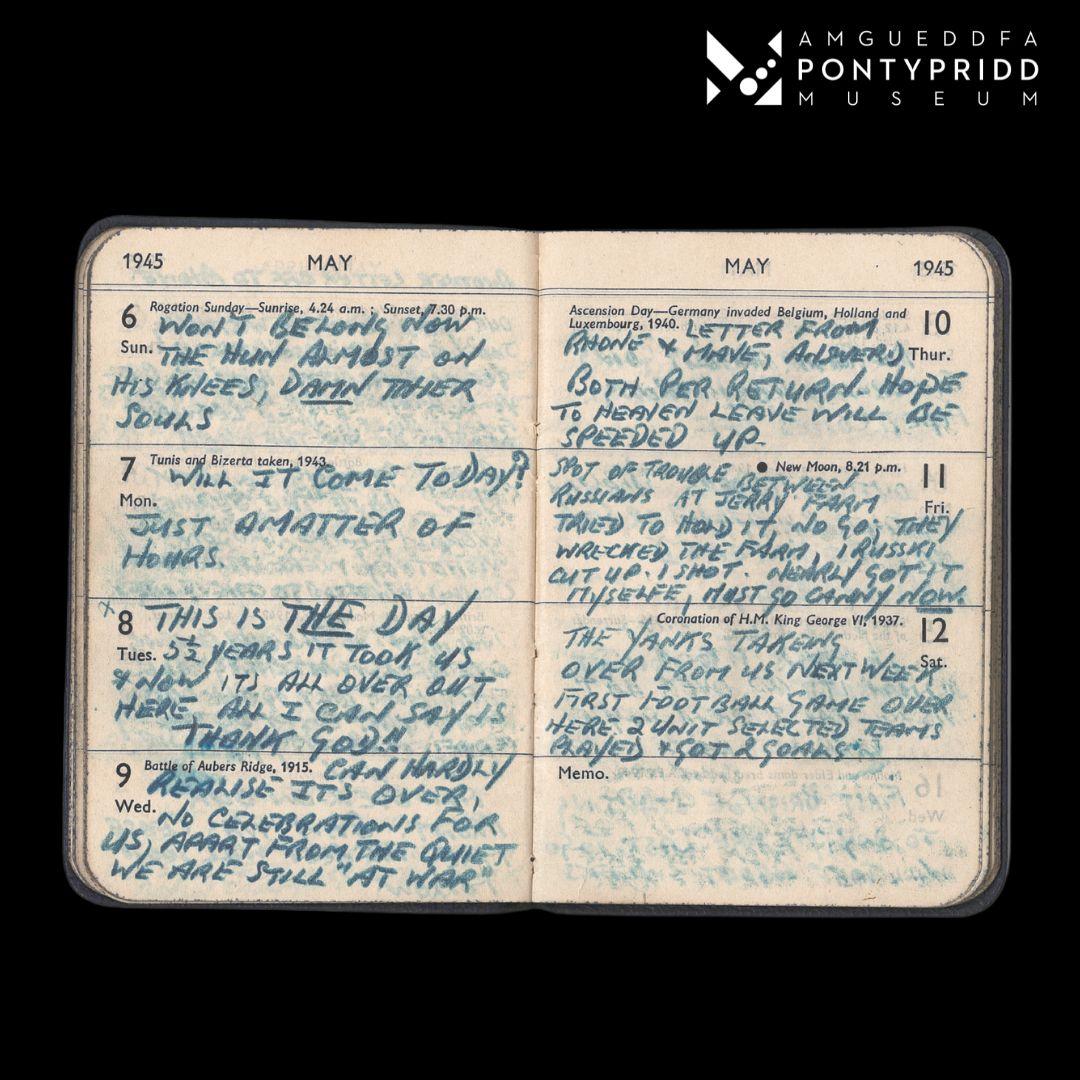 AMGUEDDFA
PONTYPRIDD
MUSEUM
1945 MAY
6 Rogation Sunday—Sunrise, 4.24 a.m. ; Sunset, 7.30 p.m.
WON'T BE LONG NOW
Sun. THE HUN ALMOST ON
HIS KNEES, DAMN THIER
SOULS
7 Tunis and Bizerta taken, 1943.
WILL IT COME TODAY?
Mon.
JUST A MATTER OF
HOURS.
x
8 THIS IS THE DAY
Tues. 5½ YEARS IT TOOK US
& NOW ITS ALL OVER OUT
HERE, ALL I CAN SAY IS
THANK GOD!!
9 Battle of Aubers Ridge, 1915. CAN HARDLY
REALISE ITS OVER,
Wed. NO CELEBRATIONS FOR
US, APART FROM THE QUIET
WE ARE STILL "AT WAR"
MAY 1945
Ascension Day—Germany invaded Belgium, Holland and 10
Luxembourg, 1940. LETTER FROM
& MAVE, ANSWERED Thur.
BOTH PER RETURN. HOPE
TO HEAVEN LEAVE WILL BE
SPEEDED UP.
SPOT OF TROUBLE ● New Moon, 8.21 p.m. 11
BETWEEN
RUSSIANS AT JERRY FARM Fri.
TRIED TO HOLD IT, NO GO, THEY
WRECKED THE FARM, 1 RUSSKI
CUT UP. 1 SHOT. NEARLY GOT IT
MYSELFE, MUST GO CANNY NOW.
Coronation of H.M. King George VI, 1937. 12
THE YANKS TAKEING
OVER FROM US NEXT WEEK Sat.
FIRST FOOTBALL GAME OVER
HERE 2 UNIT SELECTED TEAMS
PLAYED & GOT 2 GOALS
Memo.